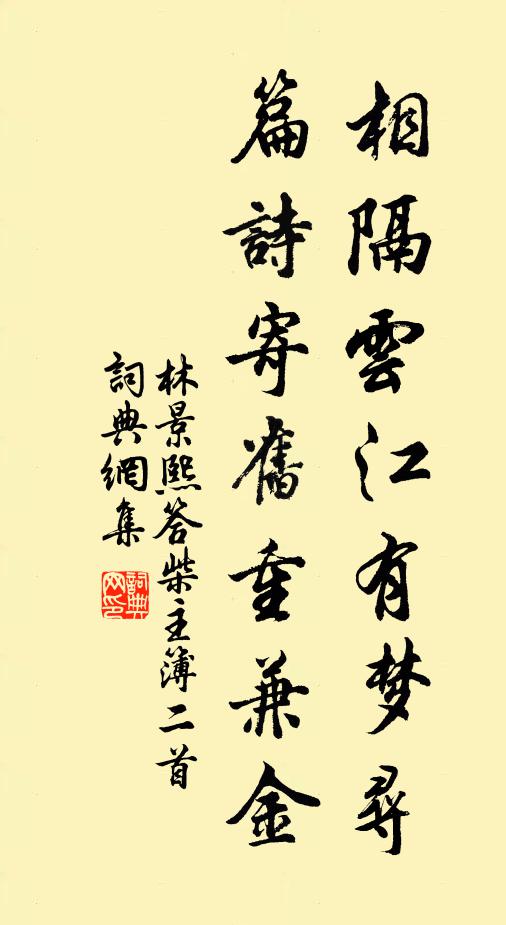 相隔雲江有梦尋
篇詩寄舊重兼金
林景熙答柴主簿二首
詞典網集
詞典网印